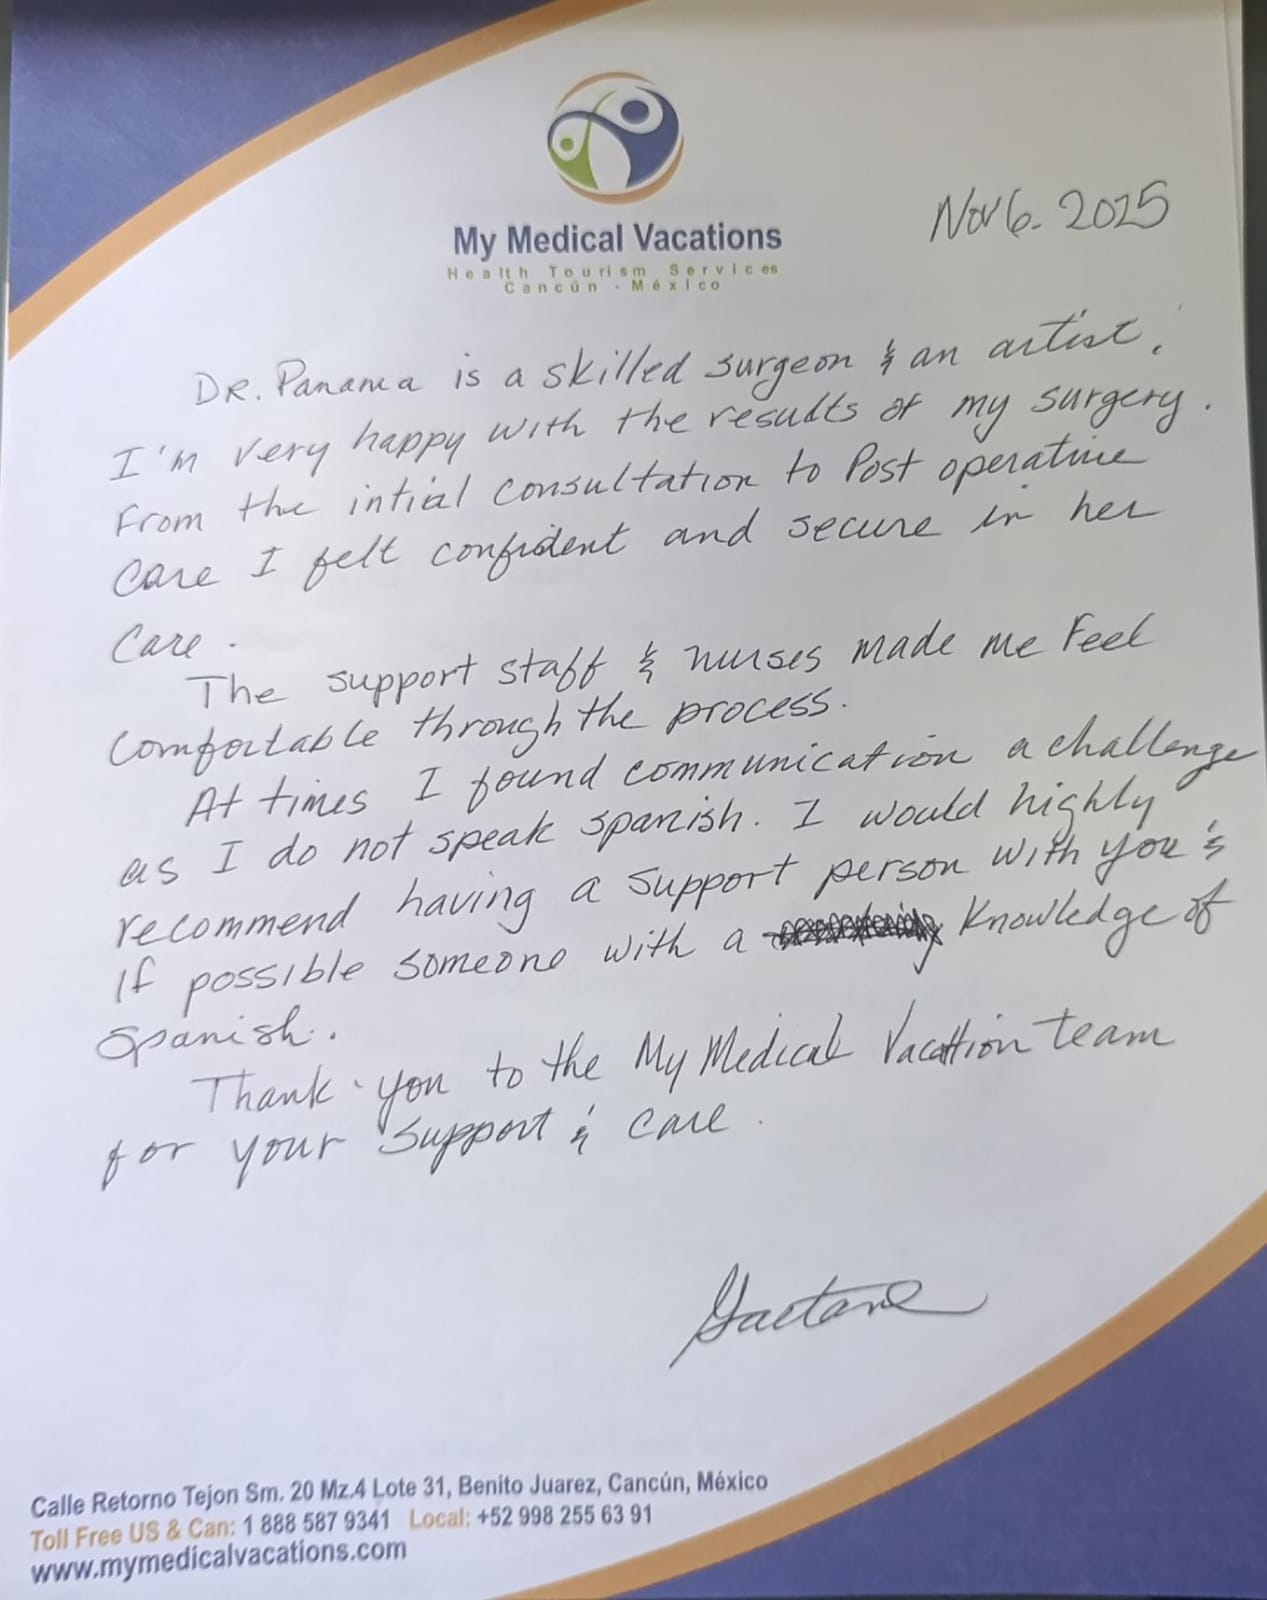 My Medical Vacations
Health Tourism Services
Cancún - México
Nov 6. 2025
DR. Panama is a skilled surgeon & an artist.
I'm very happy with the results of my surgery.
From the intial consultation to Post operative
care I felt confident and secure in her
care.
The support staff & nurses made me feel
comfortable through the process.
At times I found communication a challenge
as I do not speak spanish. I would highly
recommend having a support person with you &
if possible someone with a knowledge of
Spanish.
Thank you to the My Medical Vacation team
for your support & care.
Gaetane
Calle Retorno Tejon Sm. 20 Mz.4 Lote 31, Benito Juarez, Cancún, México
Toll Free US & Can: 1 888 587 9341 Local: +52 998 255 63 91
www.mymedicalvacations.com